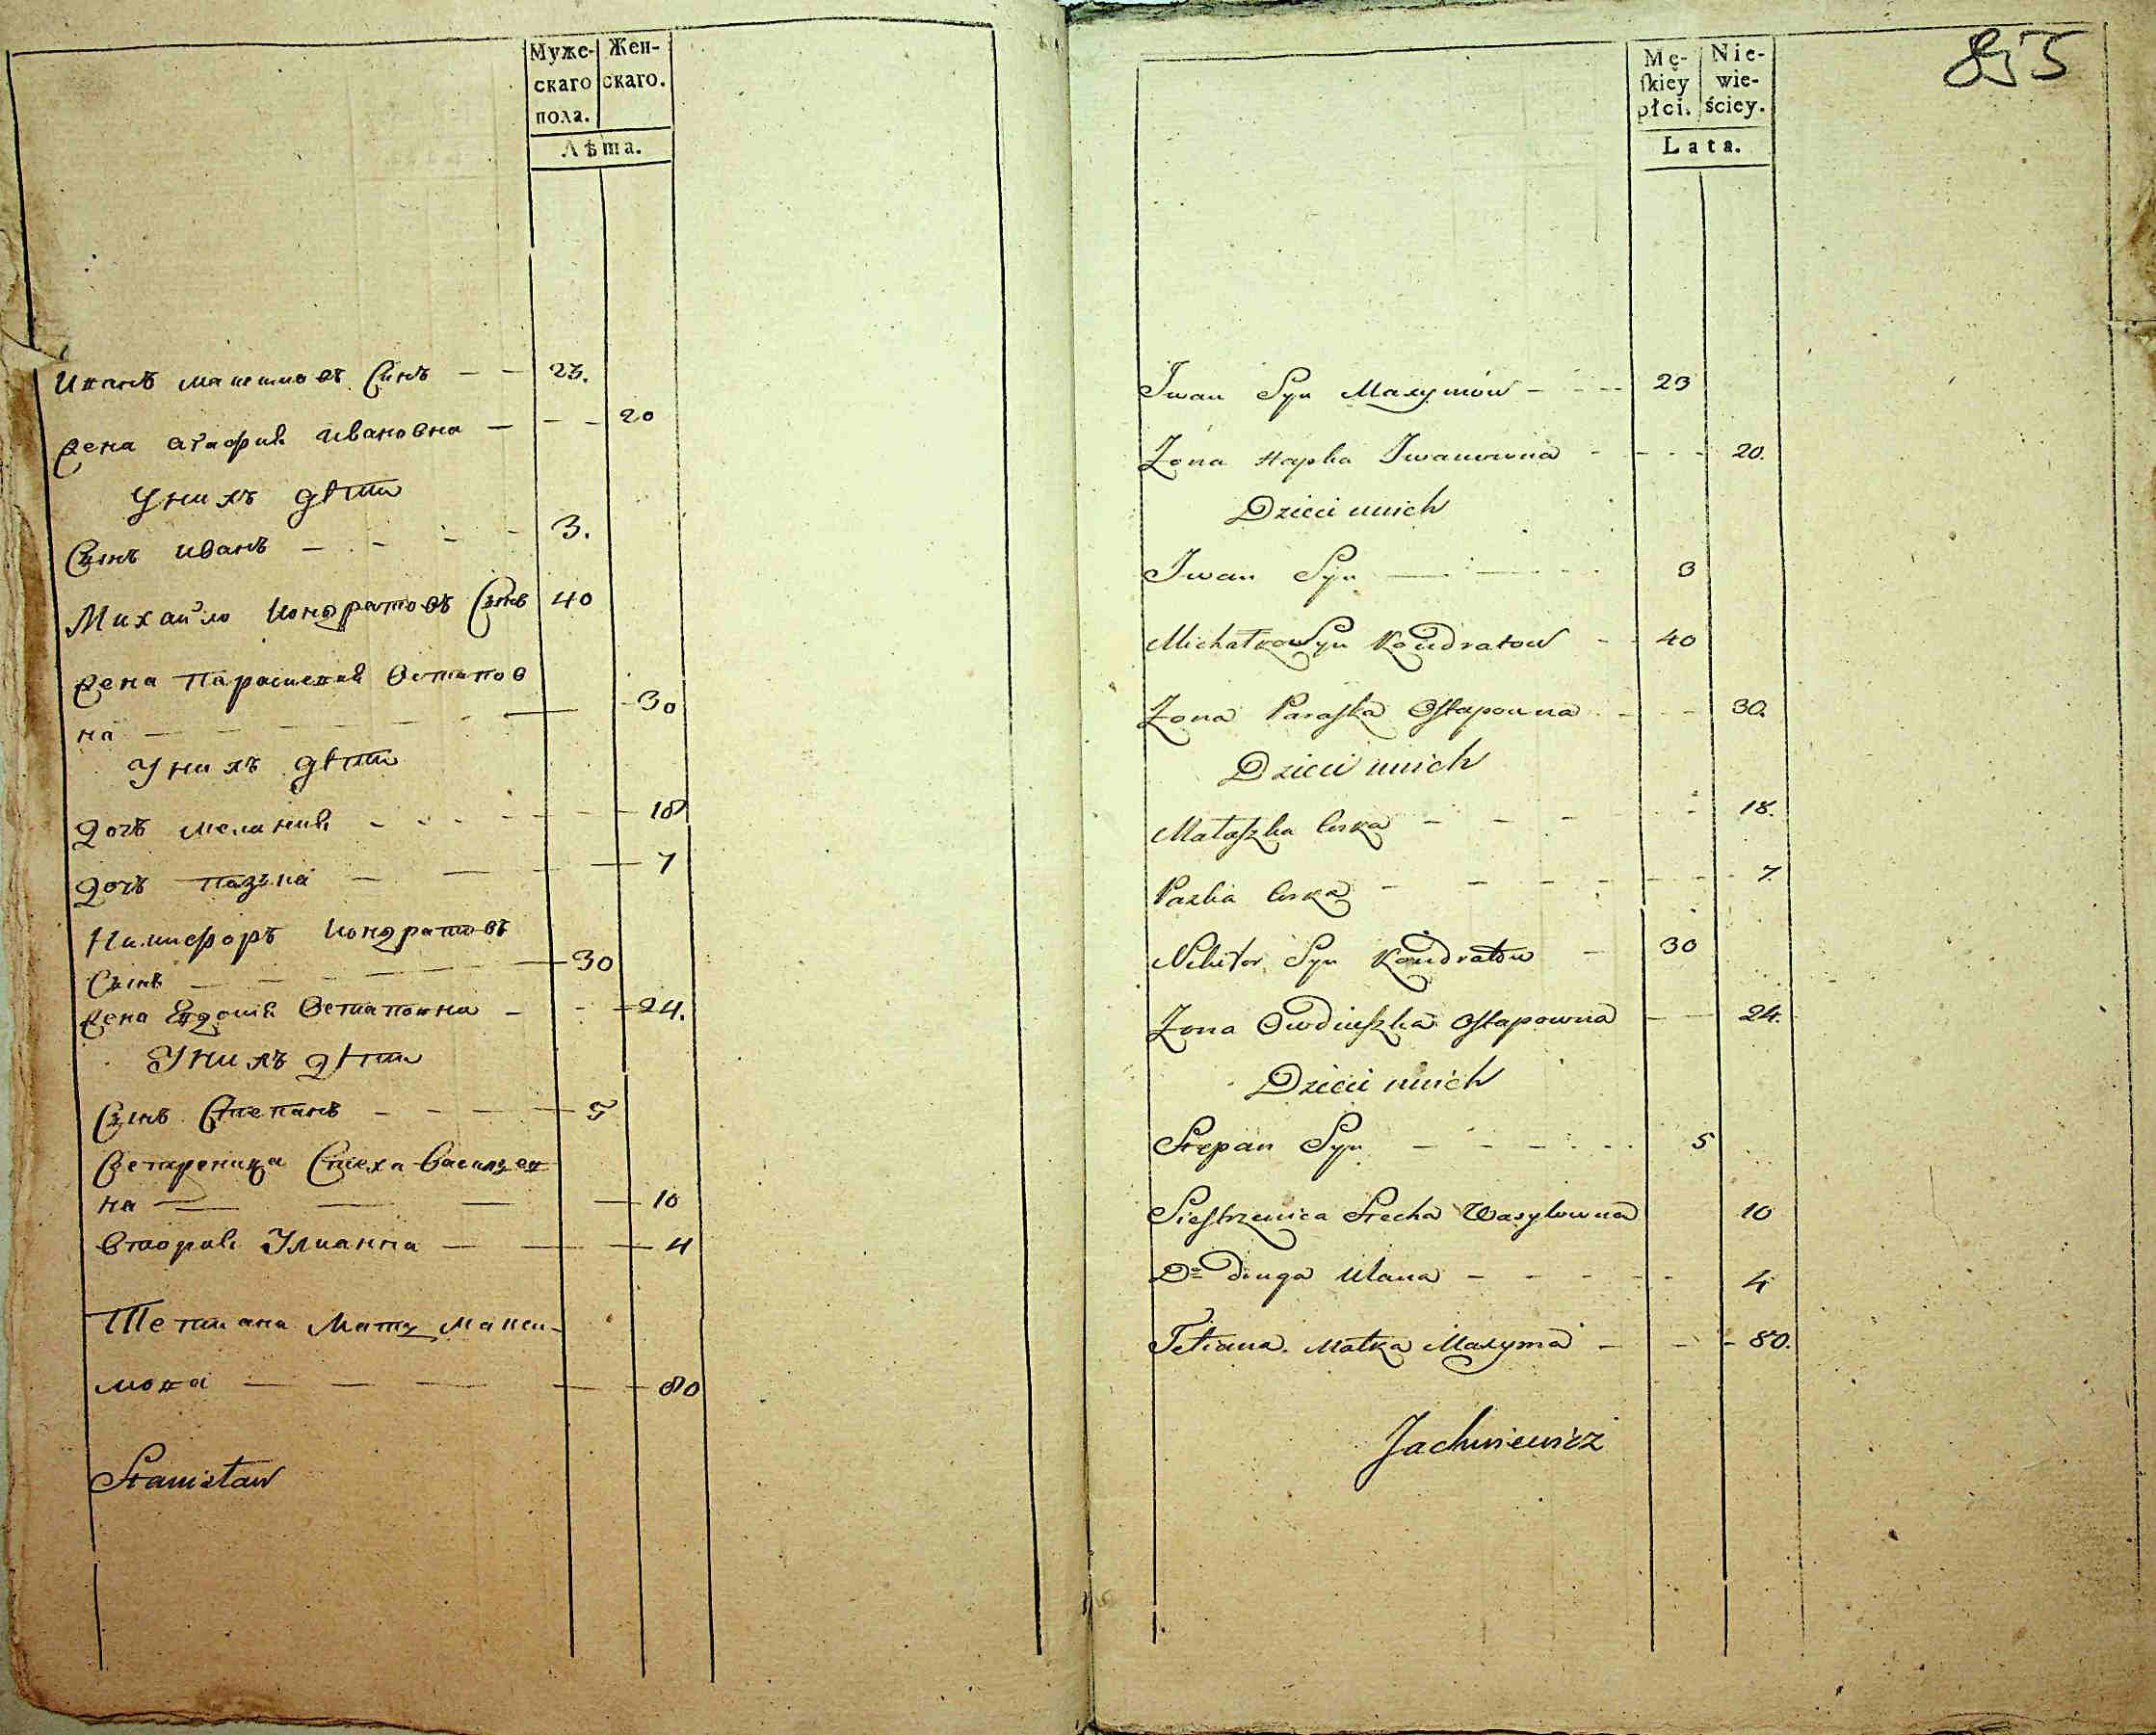 Муже- Жен-
скаго скаго.
пола.
Лѣта.
Иванъ Максимовъ Синъ — — 23.
Жена Агафия Ивановна — — — 20
Унихъ дѣти
Сынъ Иванъ — — — — 3.
Михайло Кондратовъ Сынъ 40
Жена Параскевия Остапов
на — — — — 30
Унихъ дѣти
Дочъ Мелания — — — — 18
Дочъ Пазъка — — — — 7
Никифоръ Кондратовъ
Сынъ — — — — 30
Жена Евдокия Остаповна — — 24.
Унихъ дѣти
Сынъ Степанъ — — — — 5
Сестреница Стеха Василев
на — — — — 10
Вторая Улианна — — — 4
Тетиана Мать Макси-
мова — — — — — 80
Stanisław
855
Mę- Nie-
ſkiey wie-
płci. ściey.
Lata.
Iwan Syn Maxymów — — — 23
Żona Hapka Iwanowna — — — 20.
Dzieci unich
Iwan Syn — — — — 3
Michałko Syn Kondratow — — 40
Żona Paraſka Oſtapowna — — — 30.
Dzieci unich
Małaſzka Corka — — — — — 18.
Pazka Corka — — — — — — 7.
Nikifor Syn Kondratow — 30
Żona Owdiuſzka Oſtapowna — — 24.
Dzieci unich
Stepan Syn — — — — — 5
Sieſtrzenica Stecha Wasylowna 10
Do druga Ulana — — — — — 4
Tetiana Matka Maxyma — — — 80.
Jachniewicz